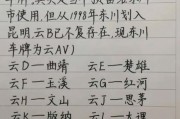 市使用,但从1998年东川划入
昆明云BE不复存在,现东川
车牌为云AV)
云D—曲靖 云E—楚雄
云F—玉溪 云G—红河
云H—文山 云J—思茅
云K—版纳 云L—大理